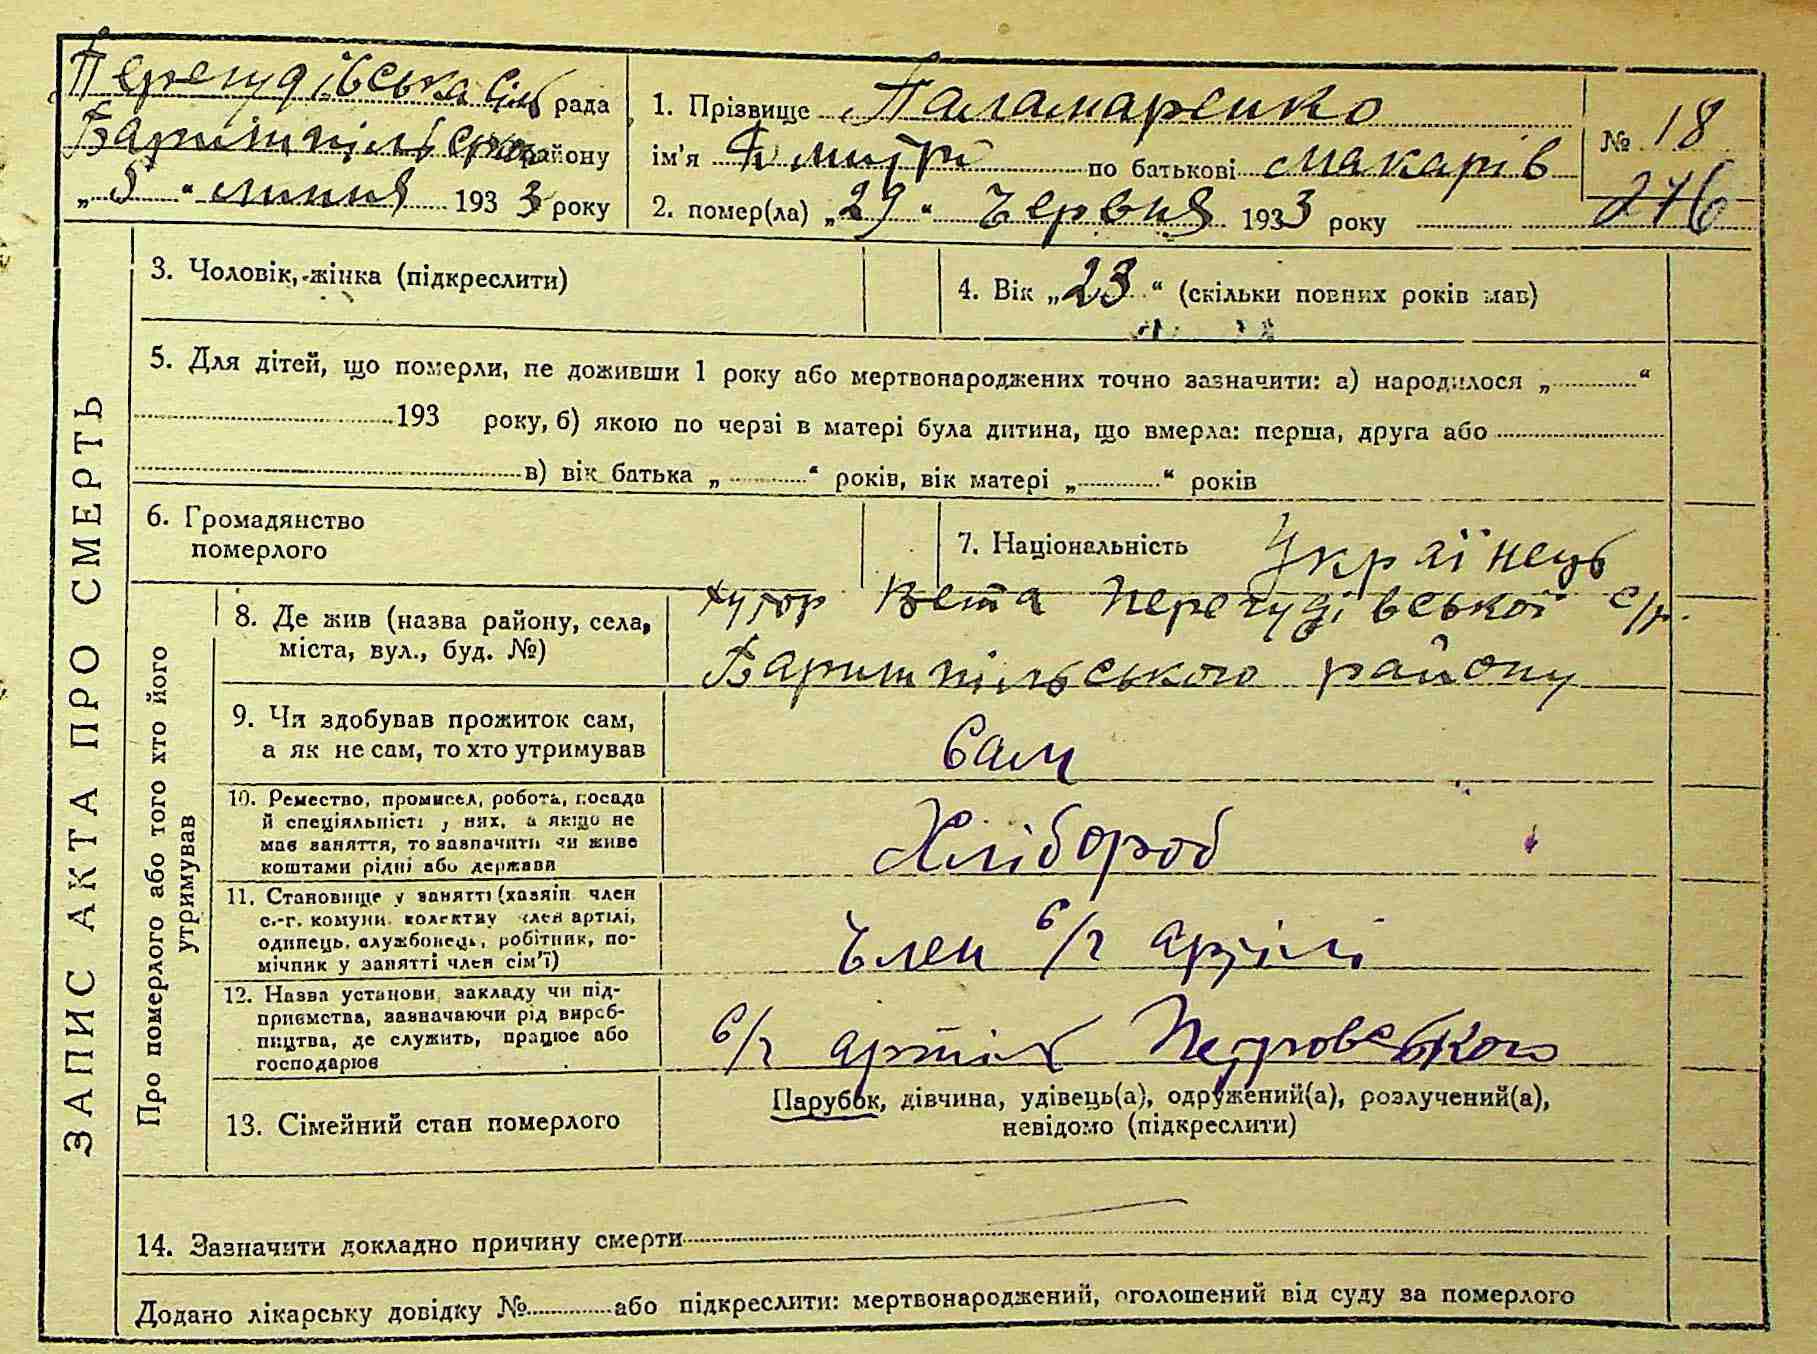 Перегудівська сіль рада
Баришпільського району
„5“ липня 1933 року
1. Прізвище Паламаренко
ім'я Дмитрі по батькові Макарів
2. помер(ла) „29“ Червня 1933 року
№ 18
276
ЗАПИС АКТА ПРО СМЕРТЬ
3. Чоловік, жінка (підкреслити)
4. Вік „23“ (скільки повних років мав)
5. Для дітей, що померли, не доживши 1 року або мертвонароджених точно зазначити: а) народилося „ “
193 року, б) якою по черзі в матері була дитина, що вмерла: перша, друга або
в) вік батька „ “ років, вік матері „ “ років
6. Громадянство
померлого
7. Національність Українець
Про померлого або того хто його
утримував
8. Де жив (назва району, села,
міста, вул., буд. №)
хутор Вета Перегудівської с/р.
Баришпільського району
9. Чи здобував прожиток сам,
а як не сам, то хто утримував
Сам
10. Ремество, промисел, робота, посада
й спеціяльність у них, а якщо не
має заняття, то зазначити чи живе
коштами рідні або держави
Хлібороб
11. Становище у занятті (хазяїн член
с.-г. комуни, колектну член артілі,
одинець, службовець, робітник, по-
мічник у занятті член сім'ї)
Член с/г артілі
12. Назва установи, закладу чи під-
приємства, зазначаючи рід вироб-
ництва, де служить, працює або
господарює
с/г артіл Петровського
13. Сімейний стан померлого
Парубок, дівчина, удівець(а), одружений(а), розлучений(а),
невідомо (підкреслити)
14. Зазначити докладно причину смерти
Додано лікарську довідку № або підкреслити: мертвонароджений, оголошений від суду за померлого